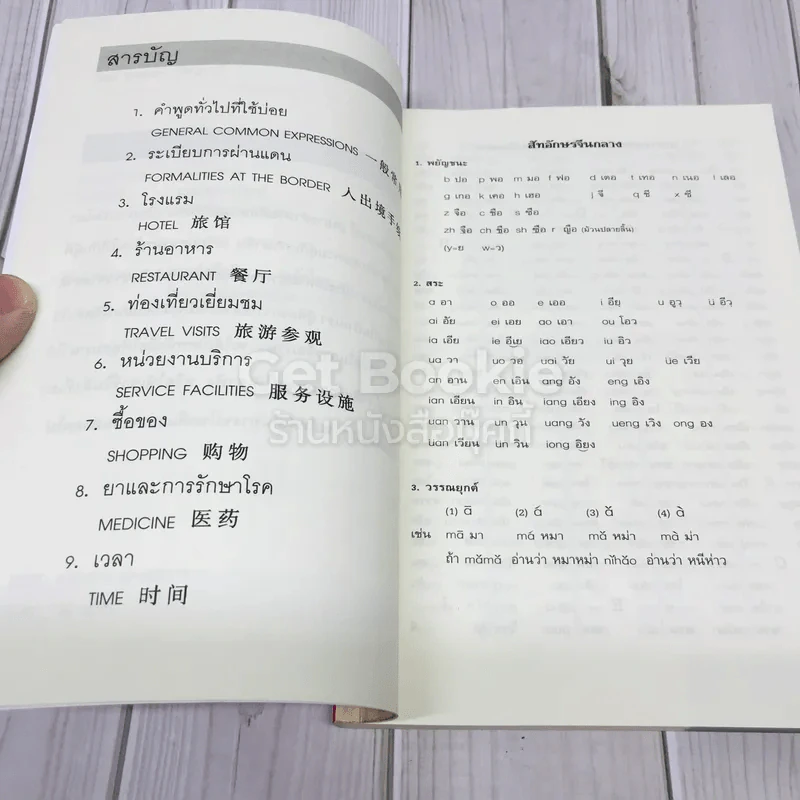 สารบัญ
1. คำพูดทั่วไปที่ใช้บ่อย
GENERAL COMMON EXPRESSIONS 一般常
2. ระเบียบการผ่านแดน
FORMALITIES AT THE BORDER 入出境手续
3. โรงแรม
HOTEL 旅馆
4. ร้านอาหาร
RESTAURANT 餐厅
5. ท่องเที่ยวเยี่ยมชม
TRAVEL VISITS 旅游参观
6. หน่วยงานบริการ
SERVICE FACILITIES 服务设施
7. ซื้อของ
SHOPPING 购物
8. ยาและการรักษาโรค
MEDICINE 医药
9. เวลา
TIME 时间
สัทอักษรจีนกลาง
1. พยัญชนะ
b ปอ p พอ m มอ f ฟอ d เตอ t เทอ n เนอ l เลอ
g เกอ k เคอ h เฮอ j จี q ชี x ซี
z จือ c ชือ s ซือ
zh จือ ch ชือ sh ซือ r ญือ (ม้วนปลายลิ้น)
(y=ย w=ว)
2. สระ
a อา o ออ e เออ i อีย u อูว ü อีว
ai อัย ei เอย ao เอา ou โอว
ia เอีย ie อีเย iao เอียว iu อิว
ua วา uo วอ uai วัย ui วุย üe เวีย
an อาน en เอิน ang อัง eng เอิง
ian เอียน in อิน iang เอียง ing อิง
uan วาน un วุน uang วัง ueng เวิง ong อง
uan เวียน un วิน iong อิยง
3. วรรณยุกต์
(1) ā (2) á (3) ǎ (4) à
เช่น mā มา má หมา mǎ หม่า mà ม่า
ถ้า mǎmǎ อ่านว่า หมาหม่า nǐhǎo อ่านว่า หนีห่าว
Get Bookie
ร้านหนังสือบุ๊คกี้